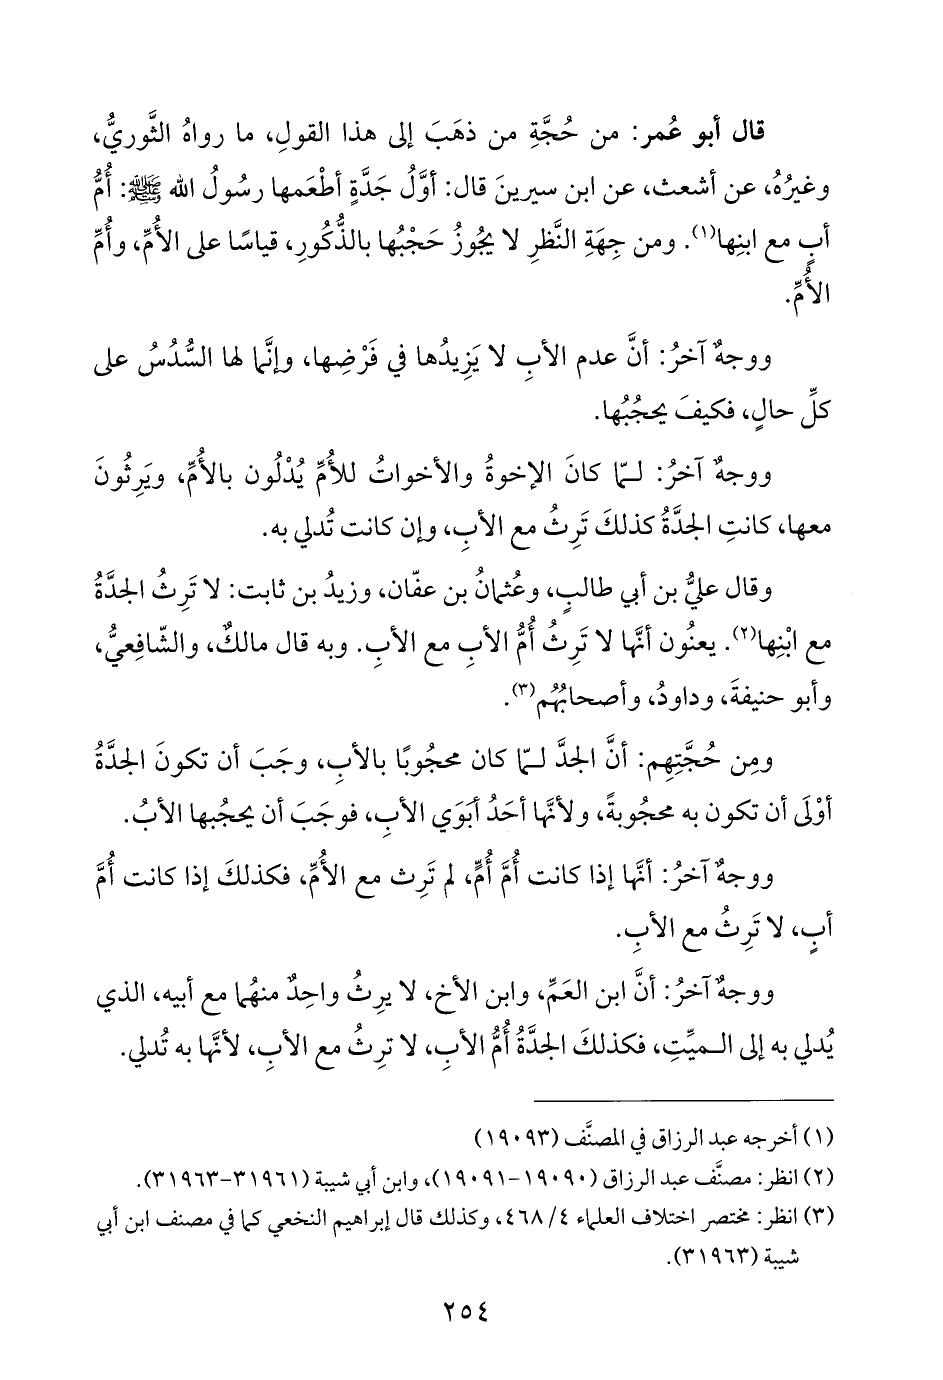 قال أبو عُمر: من حُجَّةِ من ذهَبَ إلى هذا القولِ، ما رواهُ الثَّوريُّ،
وغيرُهُ، عن أشعث، عن ابن سيرينَ قال: أوَّلُ جَدَّةٍ أطْعَمها رسُولُ الله ﷺ: أُمُّ
أبٍ مع ابنِها(١). ومن جِهَةِ النَّظرِ لا يجُوزُ حَجْبُها بالذُّكُورِ، قياسًا على الأُمِّ، وأُمِّ
الأُمِّ.
ووجهٌ آخرُ: أنَّ عدم الأبِ لا يَزِيدُها في فَرْضِها، وإنَّما لها السُّدُسُ على
كلِّ حالٍ، فكيفَ يحجُبُها.
ووجهٌ آخرُ: لـمّا كانَ الإخوةُ والأخواتُ للأُمِّ يُدْلُون بالأُمِّ، ويَرِثُونَ
معها، كانتِ الجدَّةُ كذلكَ تَرِثُ مع الأبِ، وإن كانت تُدلي به.
وقال عليُّ بن أبي طالبٍ، وعُثمانُ بن عفّان، وزيدُ بن ثابت: لا تَرِثُ الجدَّةُ
مع ابْنِها(٢). يعنُون أنَّها لا تَرِثُ أُمُّ الأبِ مع الأبِ. وبه قال مالكٌ، والشّافِعيُّ،
وأبو حنيفةَ، وداودُ، وأصحابُهُم(٣).
ومِن حُجَّتِهِم: أنَّ الجدَّ لـمّا كان محجُوبًا بالأبِ، وجَبَ أن تكونَ الجدَّةُ
أوْلَى أن تكون به محجُوبةً، ولأنَّها أحَدُ أبَوَي الأبِ، فوجَبَ أن يحجُبها الأبُ.
ووجهٌ آخرُ: أنَّها إذا كانت أُمَّ أُمٍّ، لم تَرِث مع الأُمِّ، فكذلكَ إذا كانت أُمَّ
أبٍ، لا تَرِثُ مع الأبِ.
ووجهٌ آخرُ: أنَّ ابن العَمِّ، وابن الأخ، لا يرِثُ واحِدٌ منهُما مع أبيه، الذي
يُدلي به إلى الـميِّتِ، فكذلكَ الجدَّةُ أُمُّ الأبِ، لا ترِثُ مع الأبِ، لأنَّها به تُدلي.
(١) أخرجه عبد الرزاق في المصنَّف (١٩٠٩٣)
(٢) انظر: مصنَّف عبد الرزاق (١٩٠٩٠-١٩٠٩١)، وابن أبي شيبة (٣١٩٦١-٣١٩٦٣).
(٣) انظر: مختصر اختلاف العلماء ٤/ ٤٦٨، وكذلك قال إبراهيم النخعي كما في مصنف ابن أبي
شيبة (٣١٩٦٣).
٢٥٤